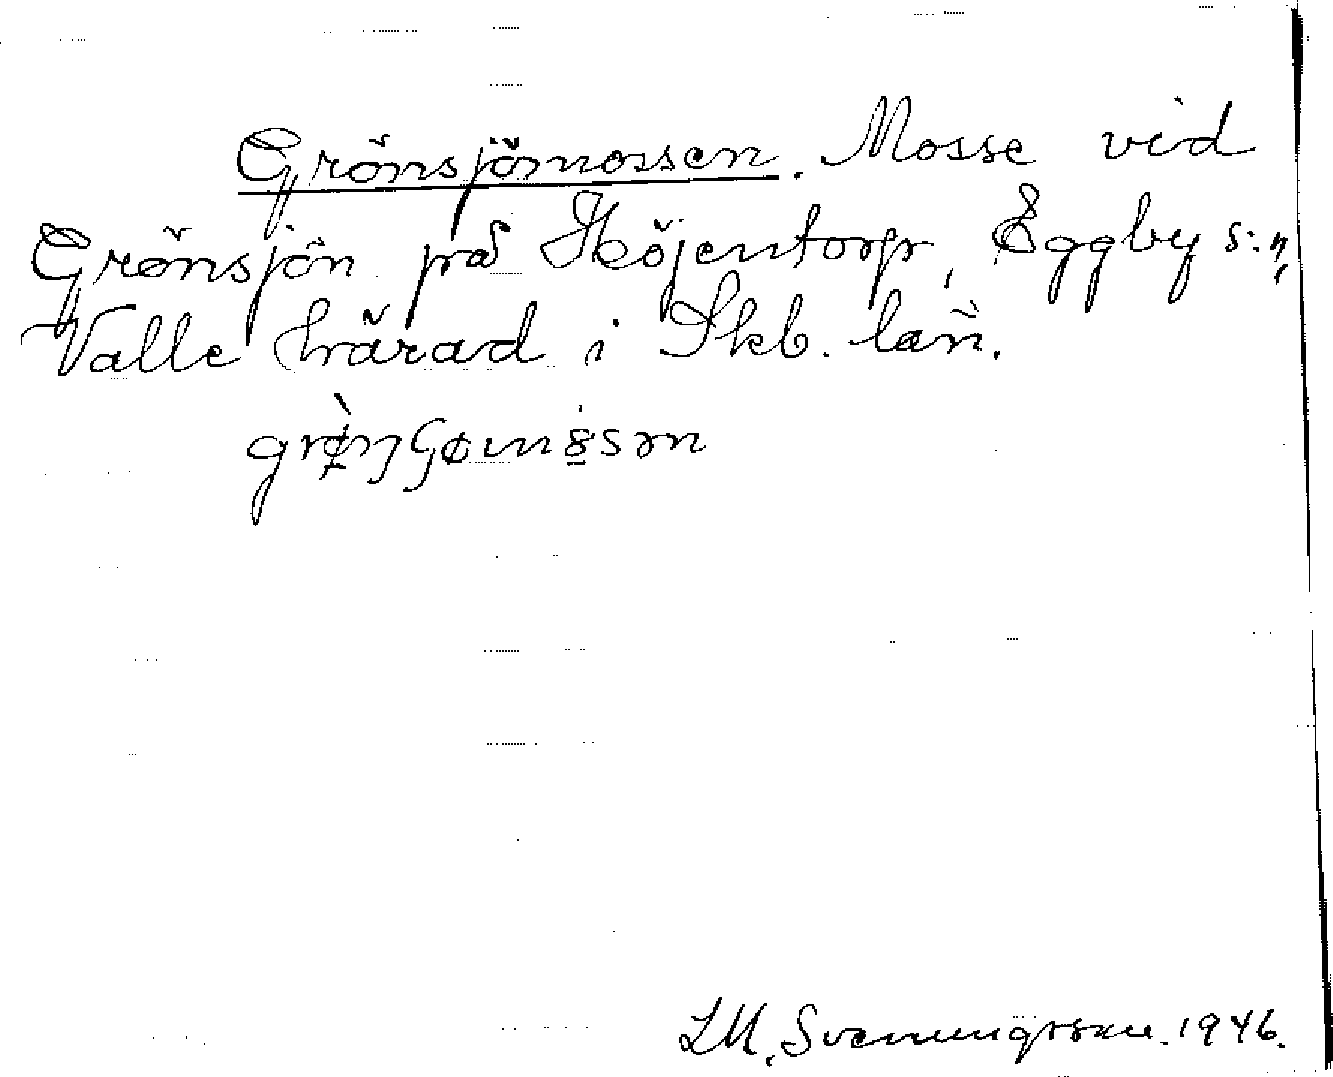 Grönsjömossen. Mosse vid
Grönsjön på Höjentorp, Eggby s:n,
Valle härad i Skb. län.
LM. Svenungsson. 1946.